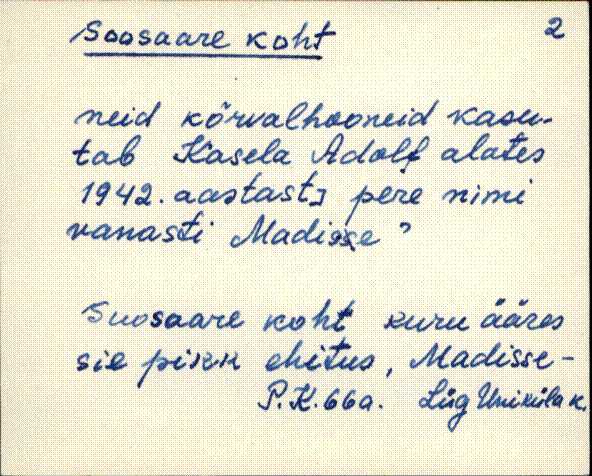 Soosaare koht
2
neid kõrvalhooneid kasu-
tab Kasela Adolf alates
1942. aastast] pere nimi
vanasti Madisse ?
Suosaare koht kuru ääres
sie pikk ehitus, Madisse -
P.K. 66a. Lüg Uniküla k.